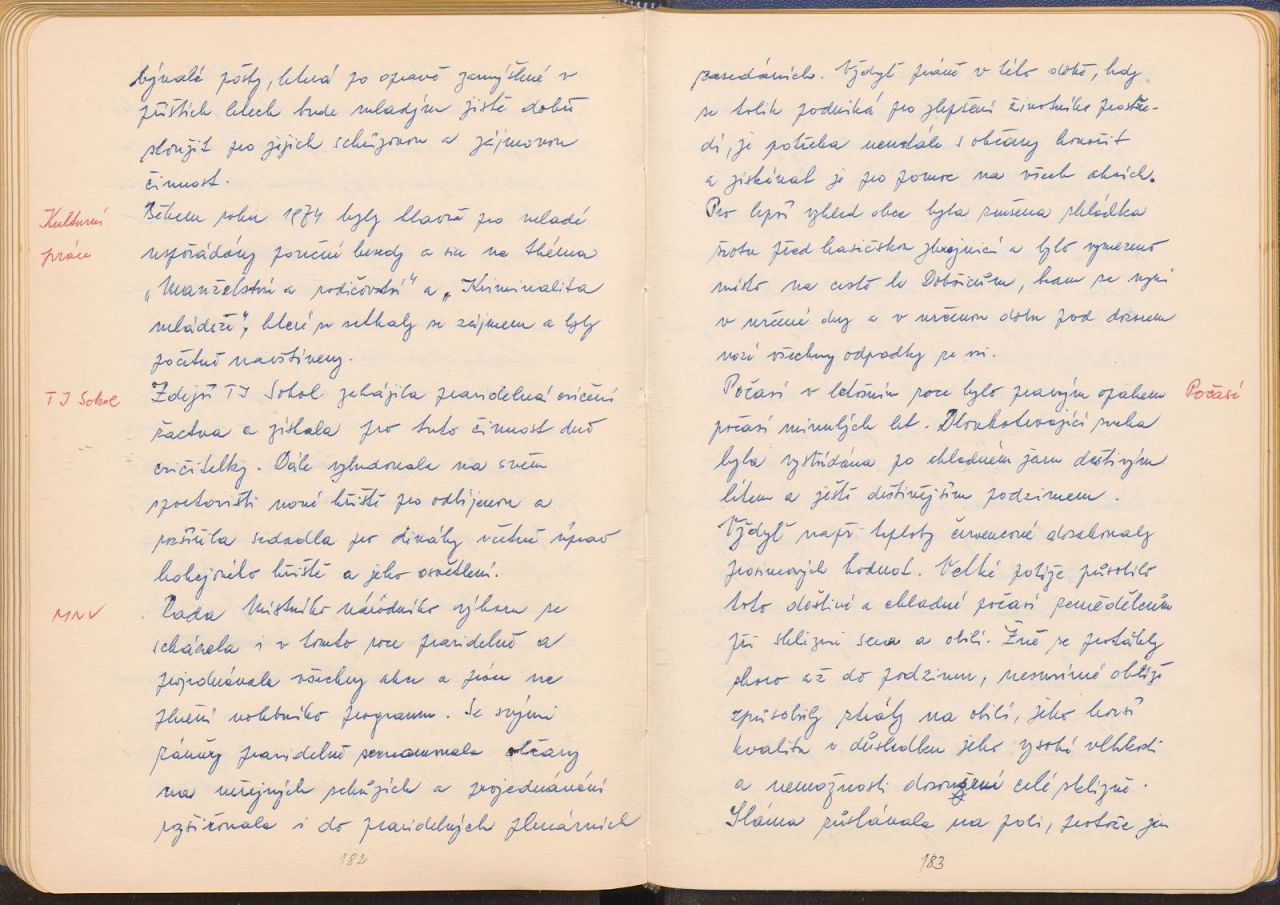 bývalé pošty, která po opravě zamýšlené v
příštích letech bude mladým jistě dobře
sloužit pro jejich schůzovou a zájmovou
činnost.
Kulturní
práce
Během roku 1974 byly hlavně pro mladé
uspořádány poučné besedy a sice na théma
„Manželství a rodičovství" a „Kriminalita
mládeže", které se setkaly se zájmem a byly
početně navštíveny.
TJ Sokol
Zdejší TJ Sokol zahájila pravidelná cvičení
žactva a získala pro tuto činnost dvě
cvičitelky. Dále vybudovala na svém
sportovišti nové hřiště pro odbíjenou a
rozšířila sedadla pro diváky včetně úprav
hokejového hřiště a jeho osvětlení.
MNV
Rada Místního národního výboru se
scházela i v tomto roce pravidelně a
projednávala všechny akce a práce na
plnění volebního programu. Se svými
záměry pravidelně seznamovala občany
na veřejných schůzích a projednávání
rozšiřovala i do pravidelných plenárních
182
zasedáních. Vždyť právě v této době, kdy
se tolik podniká pro zlepšení životního prostře-
dí, je potřeba neustále s občany hovořit
a získávat je pro pomoc na všech akcích.
Pro lepší vzhled obce byla zrušena skládka
šrotu před hasičskou zbrojnicí a bylo vymezeno
místo na cestě k Dobšicům, kam se nyní
v určené dny a v určenou dobu pod dozorem
vozí všechny odpadky ze vsi.
Počasí
Počasí v letošním roce bylo pravým opakem
počasí minulých let. Dlouhotrvající sucha
byla vystřídána po chladném jaru deštivým
létem a ještě deštivějším podzimem.
Vždyť např. teploty červencové dosahovaly
prosincových hodnot. Velké potíže působilo
toto deštivé a chladné počasí zemědělcům
při sklizni sena a obilí. Žně se protáhly
skoro až do podzimu, nesmírné obtíže
způsobily ztráty na obilí, jeho horší
kvalita v důsledku jeho vysoké vlhkosti
a nemožnosti dosoušení celé sklizně.
Sláma zůstávala na poli, protože jen
183